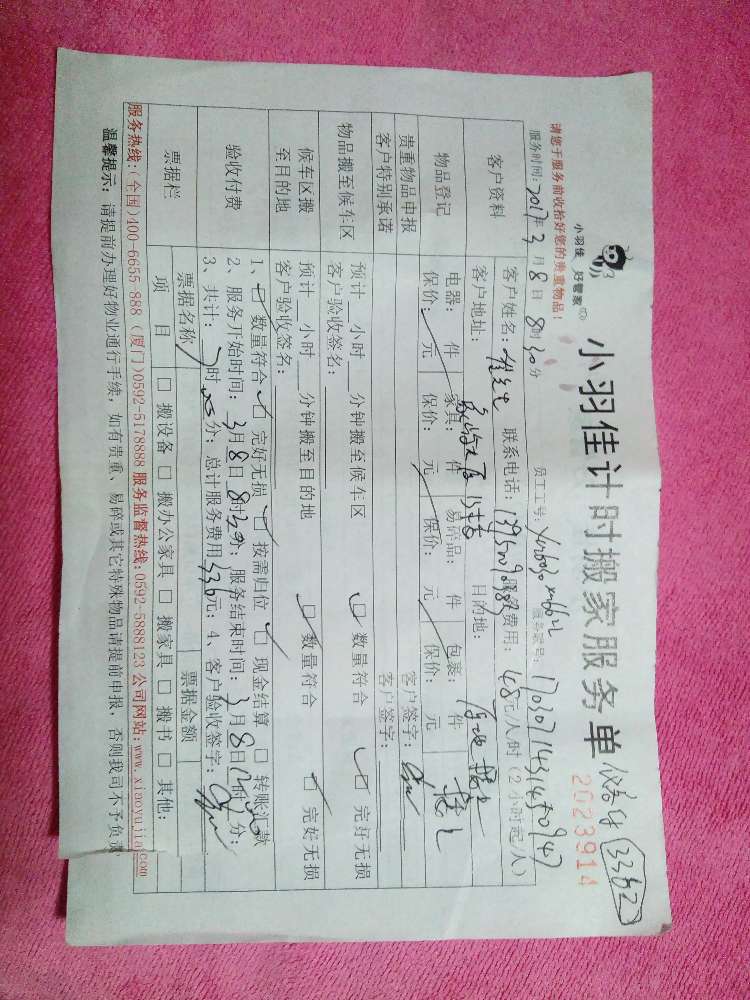 小羽佳 好管家
小羽佳计时搬家服务单
2023914
请您于服务前收拾好您的贵重物品!
服务时间:2017年3月8日8时30分 员工工号: 服务单号:
客户资料
客户姓名: 联系电话: 服务费用:48元/人/时(2小时起/人)
客户地址: 目的地:
物品登记
电器: 件 家具: 件 易碎品: 件 包裹: 件
保价: 元 保价: 元 保价: 元 保价: 元
贵重物品申报 客户签字:
客户特别承诺 客户签字:
物品搬至候车区
预计 小时 分钟搬至候车区 □ 数量符合 □ 完好无损
客户验收签名:
候车区搬至目的地
预计 小时 分钟搬至目的地 □ 数量符合 □ 完好无损
客户验收签名:
验收付费
1、□ 数量符合 □ 完好无损 □ 按需归位 □ 现金结算 □ 转账汇款
2、服务开始时间:3月8日8时30分;服务结束时间:3月8日 时 分;
3、共计: 时 分;总计服务费用336元;4、客户验收签字:
票据栏
票据名称 票据金额
项目 □ 搬设备 □ 搬办公家具 □ 搬家具 □ 搬书 □ 其他:
服务热线:(全国)400-6655-888 (厦门)0592-5178888 服务监督热线:0592-5888123 公司网站:www.xiaoyujia.com
温馨提示:请提前办理好物业通行手续,如有贵重、易碎或其它特殊物品请提前申报,否则我司不予负责